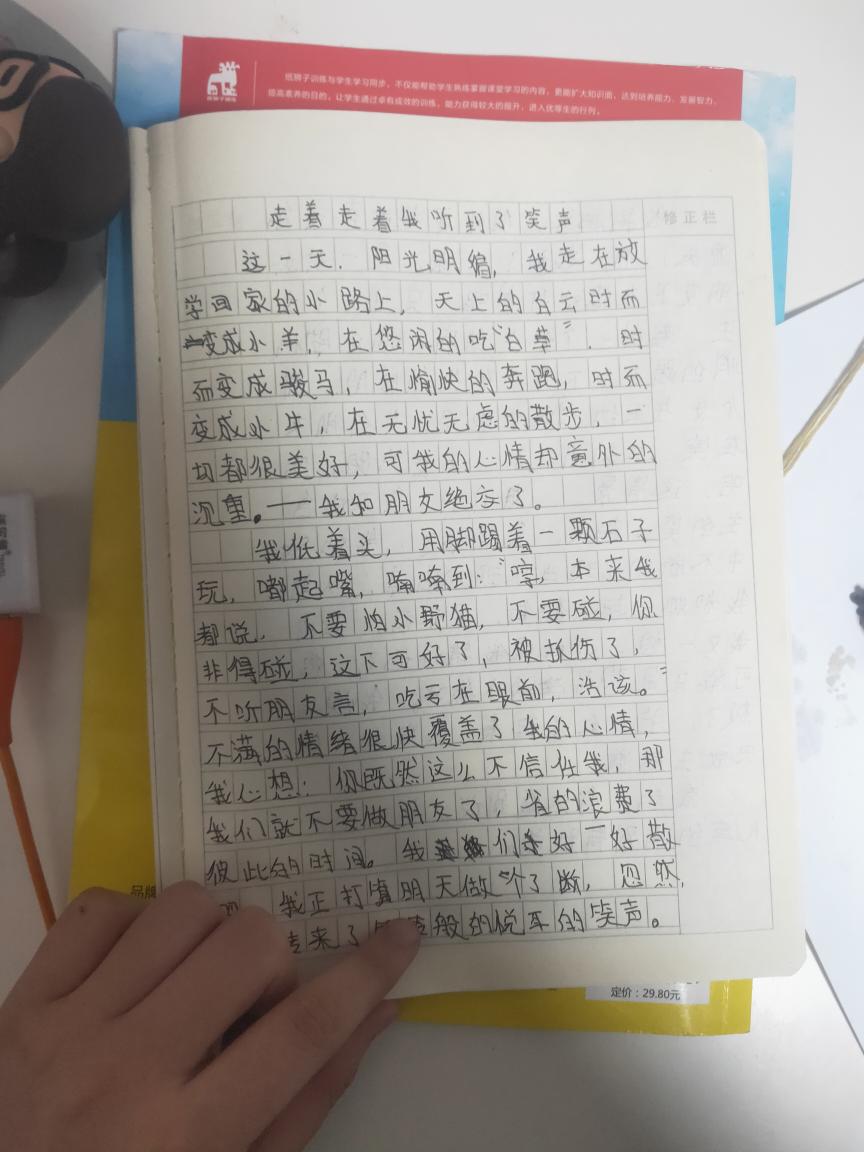 纸狮子训练与学生学习同步，不仅能帮助学生熟练掌握课堂学习的内容，更能扩大知识面，达到培养能力、发展智力、
提高素养的目的，让学生通过卓有成效的训练，能力获得较大的提升，进入优等生的行列。
修正栏
走着走着我听到了笑声
这一天．阳光明媚，我走在放
学回家的小路上，天上的白云时而
变成小羊，在悠闲的吃“白草”．时
而变成骏马，在愉快的奔跑，时而
变成小牛，在无忧无虑的散步，一
切都很美好，可我的心情却意外的
沉重。——我和朋友绝交了。
我低着头，用脚踢着一颗石子
玩，嘟起嘴，喃喃到：“哼，本来我
都说，不要怕小野猫，不要碰，你
非得碰，这下可好了，被抓伤了，
不听朋友言，吃亏在眼前，活该。”
不满的情绪很快覆盖了我的心情，
我心想：你既然这么不信任我，那
我们就不要做朋友了，省的浪费了
彼此的时间。我们好一好散
我正打算明天做个了断，忽然，
来了般的悦耳的笑声。
品牌
定价：29.80元